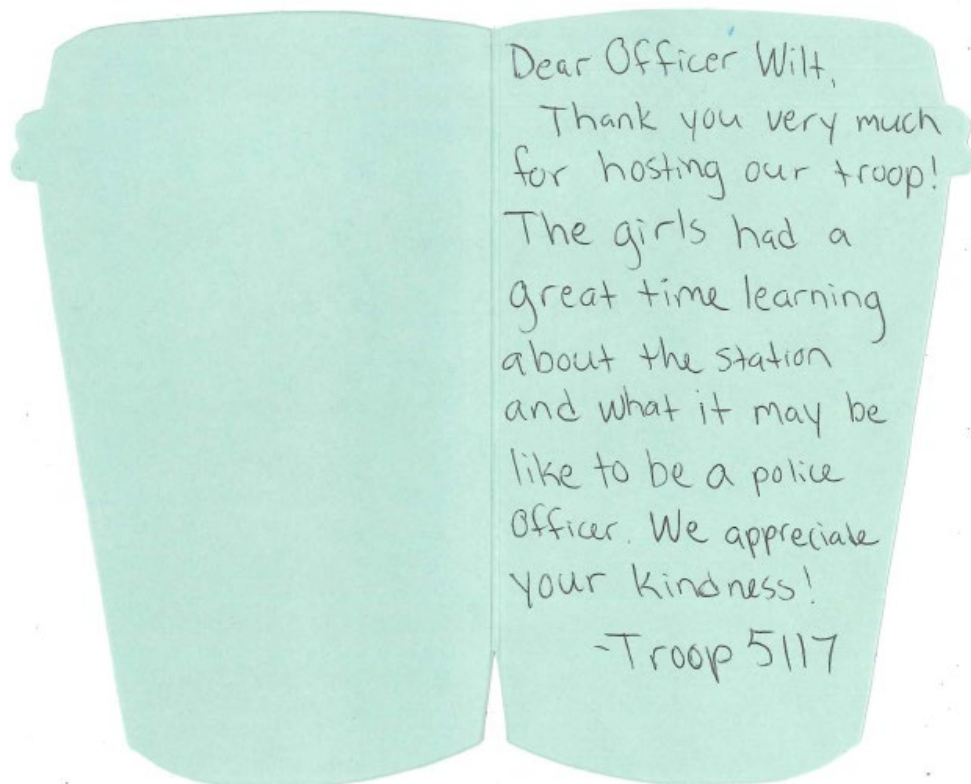 Dear Officer Wilt,
Thank you very much
for hosting our troop!
The girls had a
great time learning
about the station
and what it may be
like to be a police
Officer. We appreciate
your kindness!
-Troop 5117